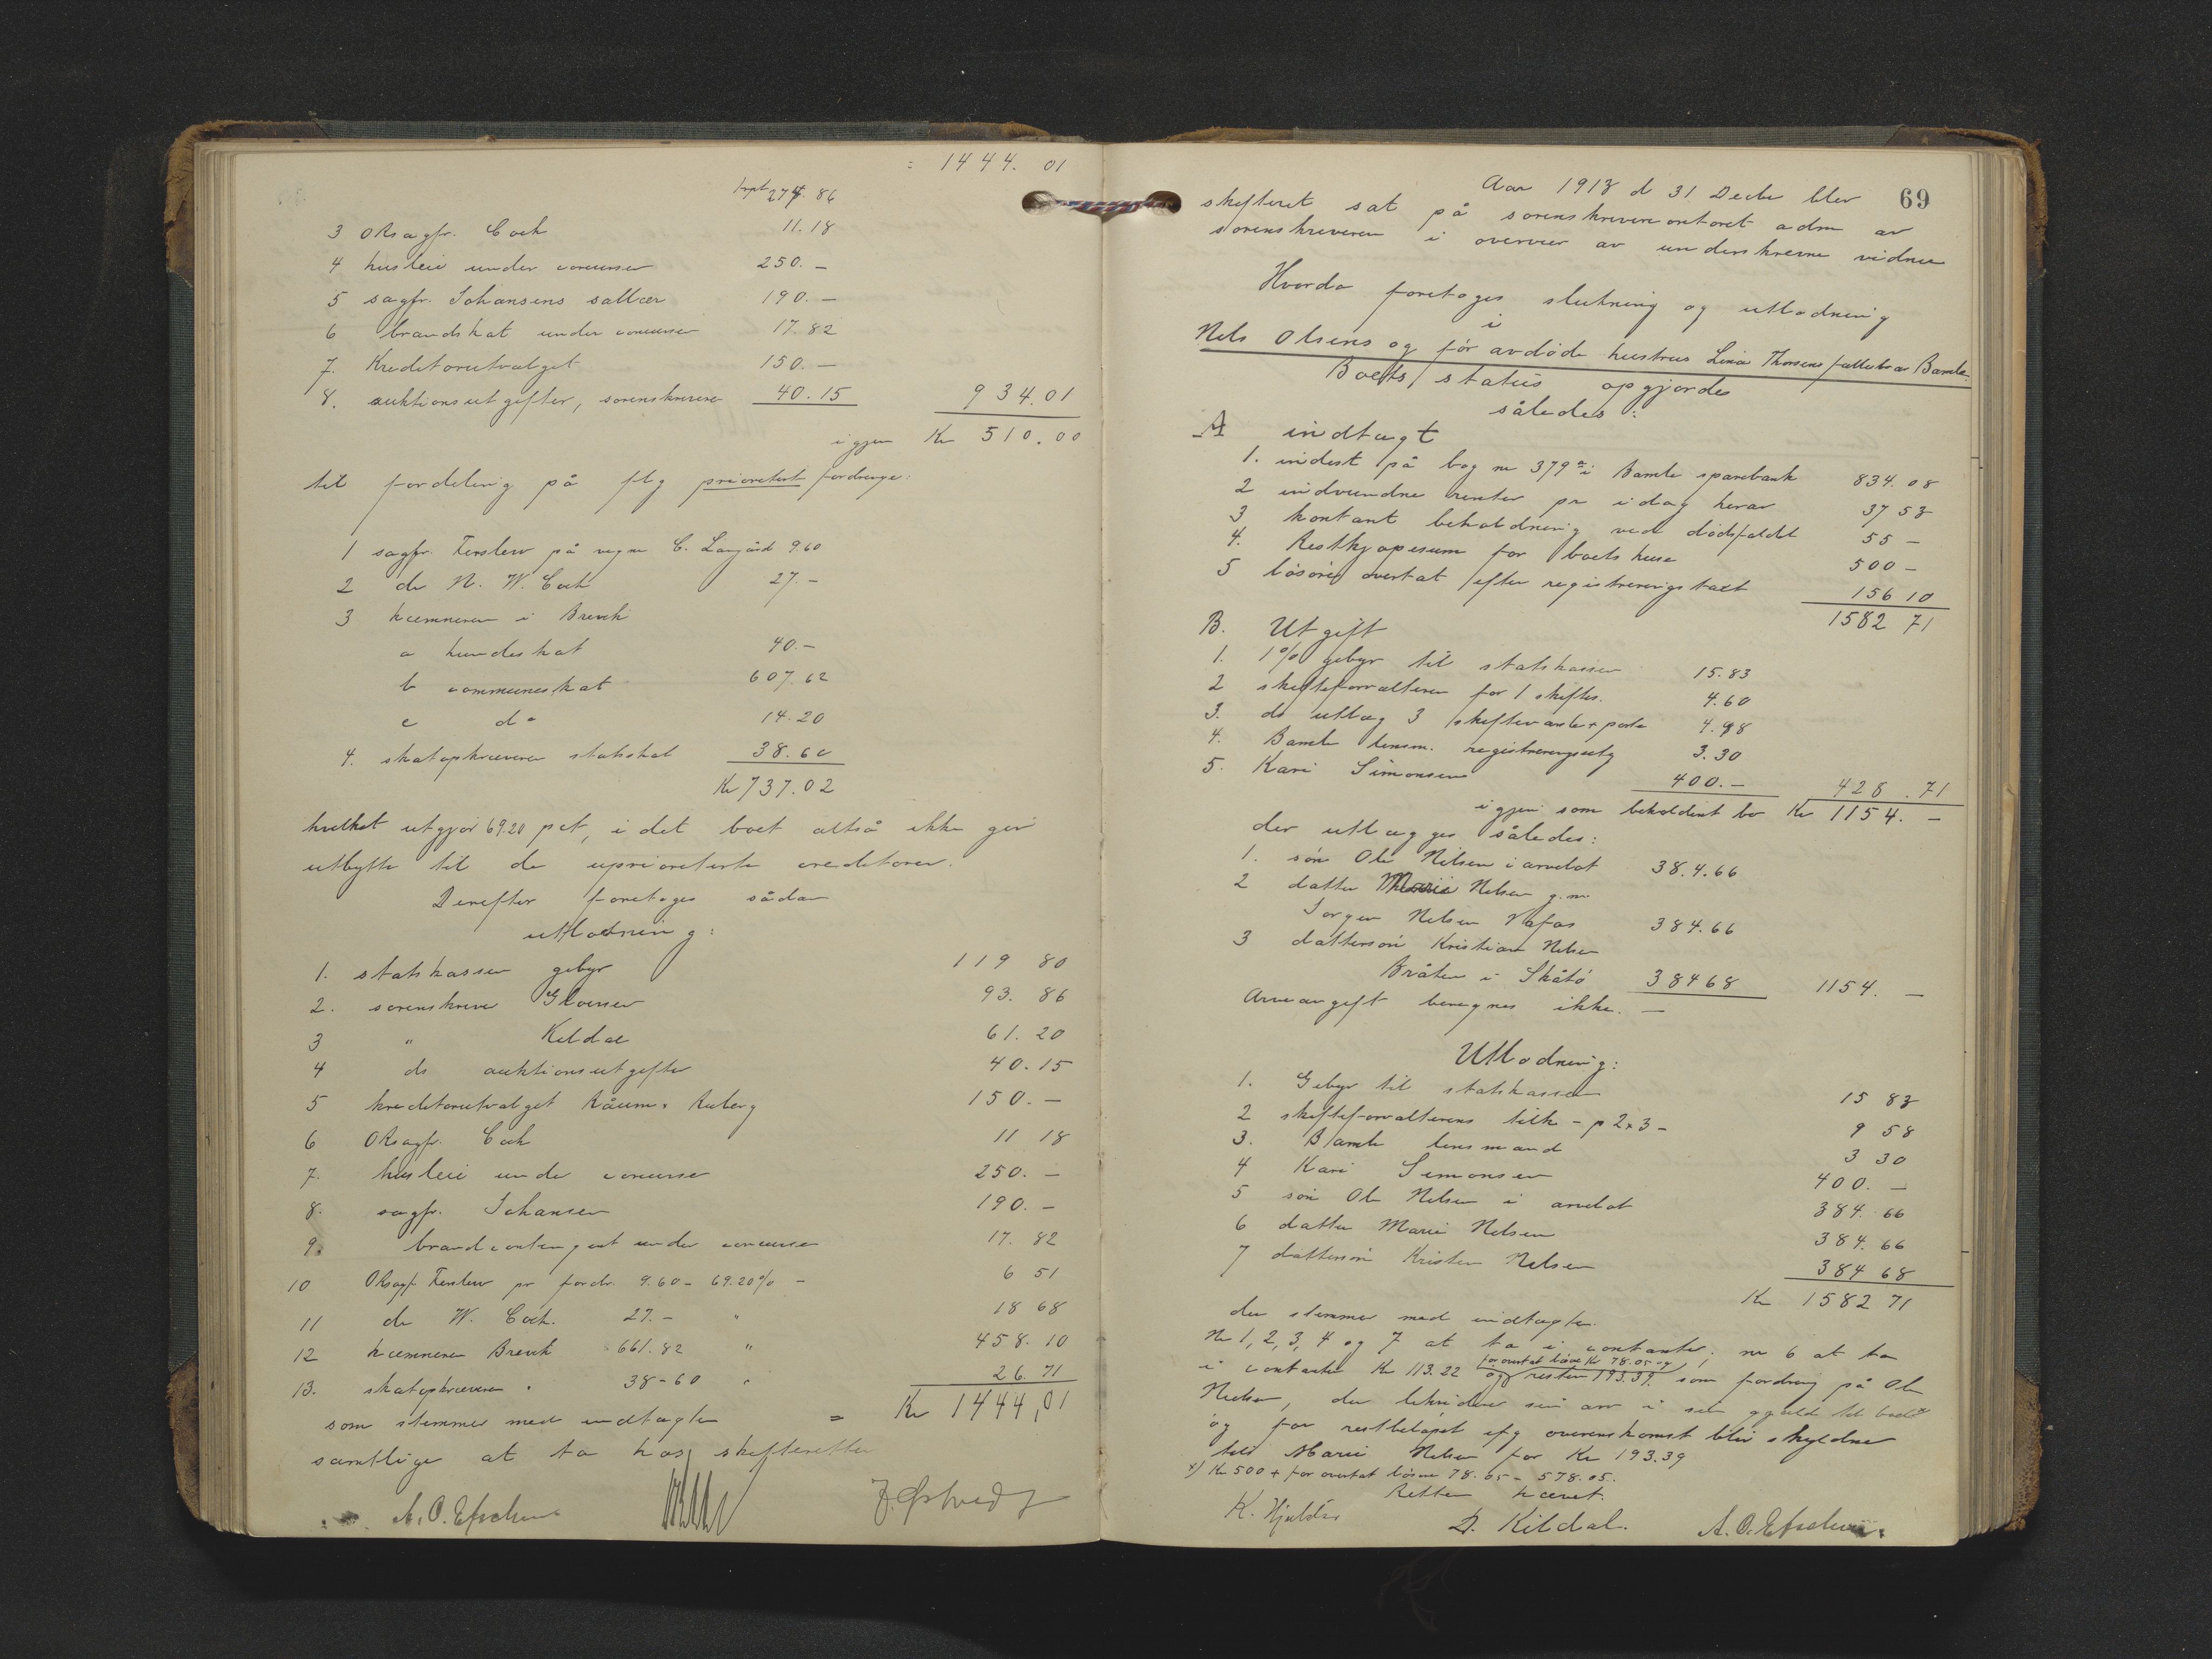 = 1444. 01
trpt 274. 86
3 ORsagfr. Coch 11. 18
4 husleie under concurser 250. —
5 sagfr. Johansens sallær 190. —
6 brandskat under concurser 17. 82
7. Kreditorutvalget 150. —
8. auktionsutgifter, sorenskriveren 40. 15 934. 01
igjen Kr 510. 00
til fordeling på flg prioritert fordringe:
1 sagfr. Ferslew på vegne C. Langård 9.60
2 do N. W. Coch 27. —
3 kæmneren i Brevik
a hundeskat 40. —
b communeskat 607. 62
c do 14. 20
4. skatopkræveren statskat 38. 60
Kr 737. 02
hvilket utgjør 69.20 pct, i det boet altså ikke gir
utbytte til de uprioriterte creditorer.
Derefter foretoges sådan
utlodning:
1. statskassen gebyr 119 80
2. sorenskriver Gloersen 93. 86
3 " Kildal 61. 20
4 do auktionsutgifter 40. 15
5 kreditorutvalget Råum & Ruberg 150. —
6 ORsagfr. Coch 11 18
7. husleie under concurser 250. —
8. sagfr. Johansen 190. —
9. brandcontingent under concurser 17. 82
10 ORsagf. Ferslew pr fordr. 9.60 - 69.20% - 6 51
11 do W. Coch. 27. — " 18 68
12 kæmneren Brevik 661. 82 " 458. 10
13. skatopkræveren " 38-60 " 26. 71
som stemmer med indtægten = Kr 1444,01
samtlige at ta hos skifteretten
A. O. Efschen J. Østvedt
69
Aar 1918 d 31 Decbr blev
skifteret sat på sorenskriverecontoret adm av
sorenskriveren i overvær av underskrevne vidner
Hvorda foretoges slutning og utlodning
i
Nils Olsens og før avdøde hustrus Lina Thorsens fællesbo av Bamle.
Boets status opgjordes
således:
A indtægt
1. indest på bog nr 379 a i Bamle sparebank 834. 08
2 indvundne renter pr idag herav 37 53
3 kontant beholdning ved dødsfaldet 55 —
4. Restkjøpesum for boets huse 500 —
5 løsøre overtat efter registreringstaxt 156 10
1582 71
B. Utgift
1. 1% gebyr til statskassen 15. 83
2 skifteforvalteren for 1 skiftes. 4. 60
3. do utlæg 3 skiftevarsler + porto 4. 98
4. Bamle lensm. registreringsutg 3. 30
5. Kari Simonsen 400. — 428. 71
igjen som beholdent bo Kr 1154. —
der utlægges således:
1. søn Ole Nilsen i arvelot 38.4.66
2 datter Marie Nilsen g. m.
Jørgen Nilsen Nafas 384. 66
3 dattersøn Kristian Nilsen
Bråten i Skåtø 384 68 1154. —
Arveavgift beregnes ikke. —
Utlodning:
1. Gebyr til statskassen 15 83
2 skifteforvalterens tilk - p 2 & 3 - 9 58
3. Bamle lensmand 3 30
4 Kari Simonsen 400. —
5 søn Ole Nilsen i arvelot 384. 66
6 datter Marie Nilsen 384. 66
7 dattersøn Kristen Nilsen 384 68
Kr 1582 71
der stemmer med indtægten.
Nr 1, 2, 3, 4 og 7 at ta i contanter; nr 6 at ta
for overtat løsøre Kr 78.05 og
i contanter Kr 113.22 og resten 193.39 som fordring på Ole
Nielsen, der likviderer sin arv i sin gjæld til boet x)
og for restbeløpet efg overenskomst blir skyldner
til Marie Nilsen for Kr 193.39
x) Kr 500 + for overtat løsøre 78.05 - 578.05.
Retten hævet.
K. Hjulstad D. Kildal. A. O. Efschen